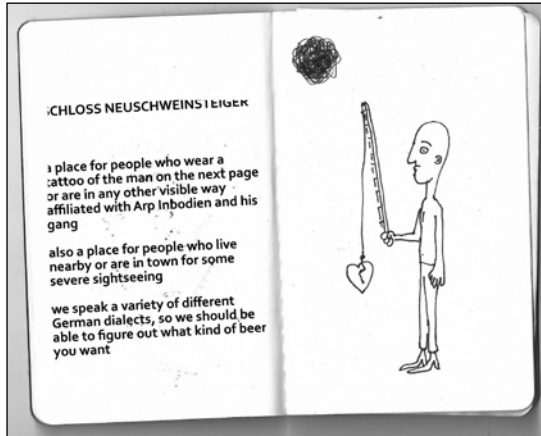 SCHLOSS NEUSCHWEINSTEIGER
a place for people who wear a
tattoo of the man on the next page
or are in any other visible way
affiliated with Arp Inbodien and his
gang
also a place for people who live
nearby or are in town for some
severe sightseeing
we speak a variety of different
German dialects, so we should be
able to figure out what kind of beer
you want